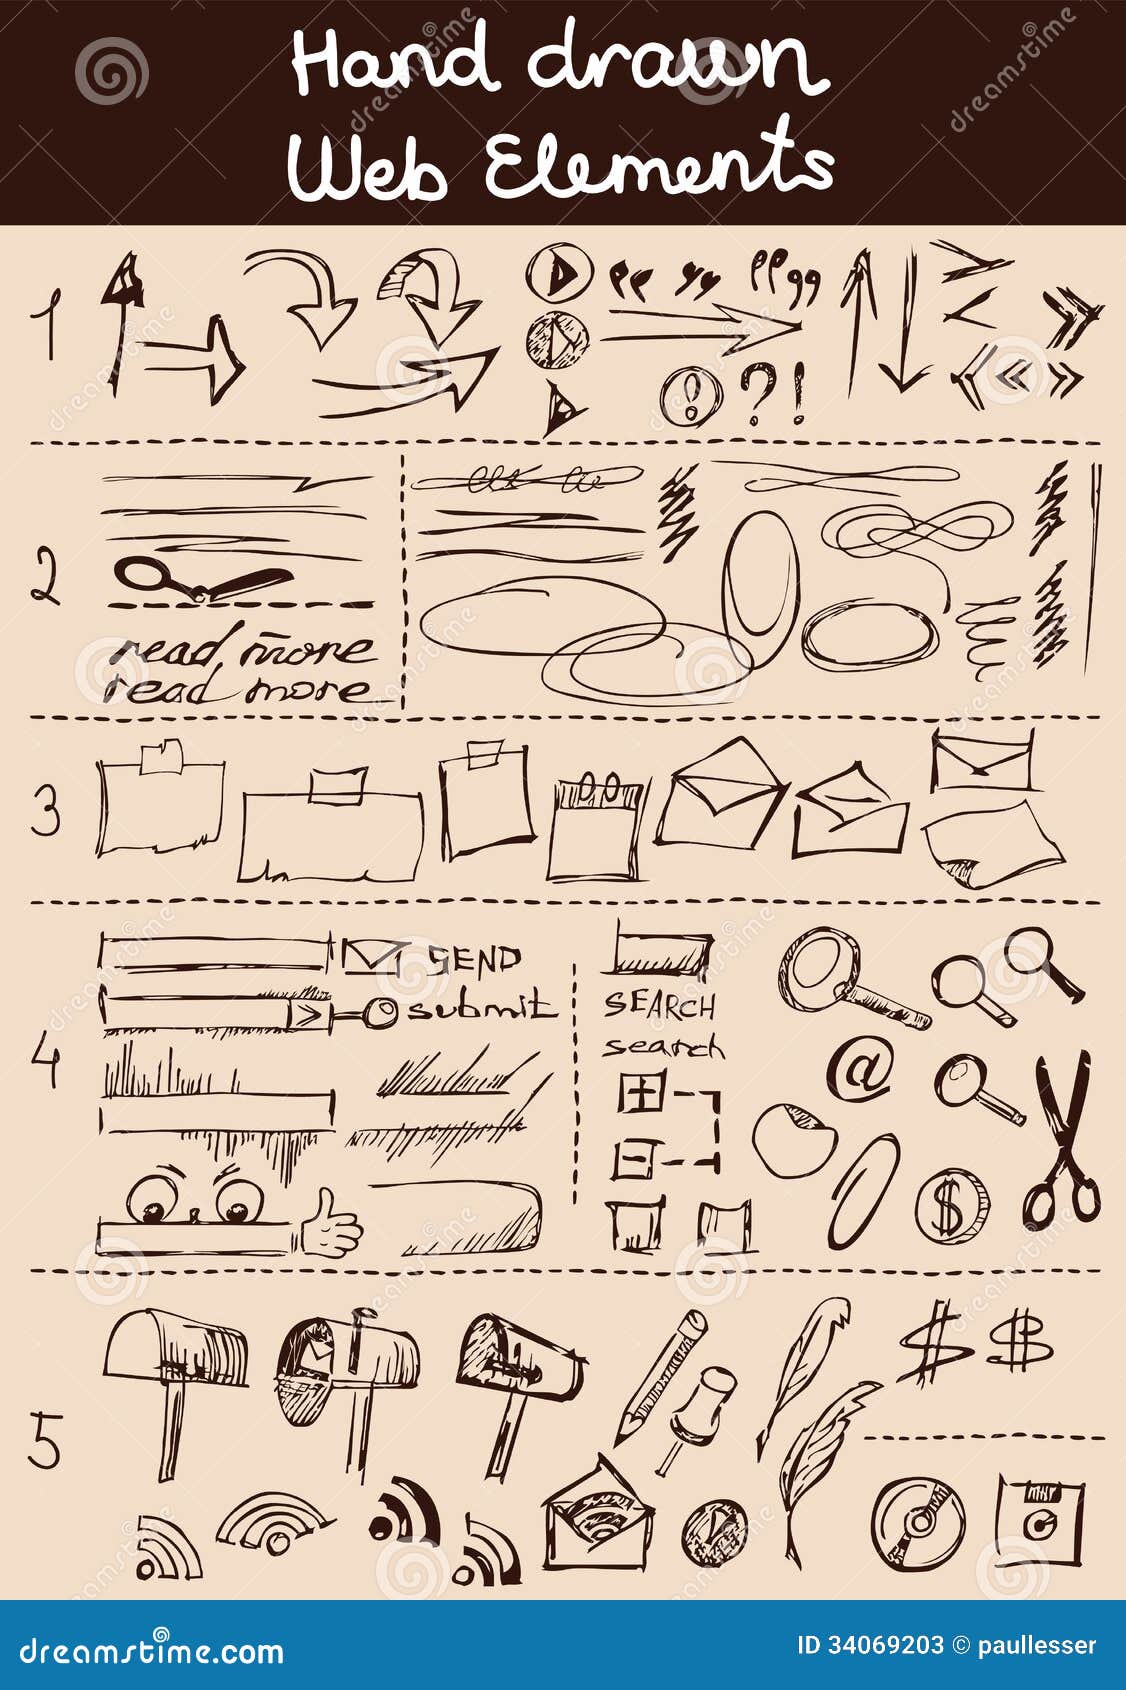 Hand drawn
Web Elements
1
“ ” “ ”
! ? !
« »
2
read more
read more
3
4
SEND
> submit
SEARCH
search
+
-
@
$
5
$ $
dreamstime.com
ID 34069203 © paullesser